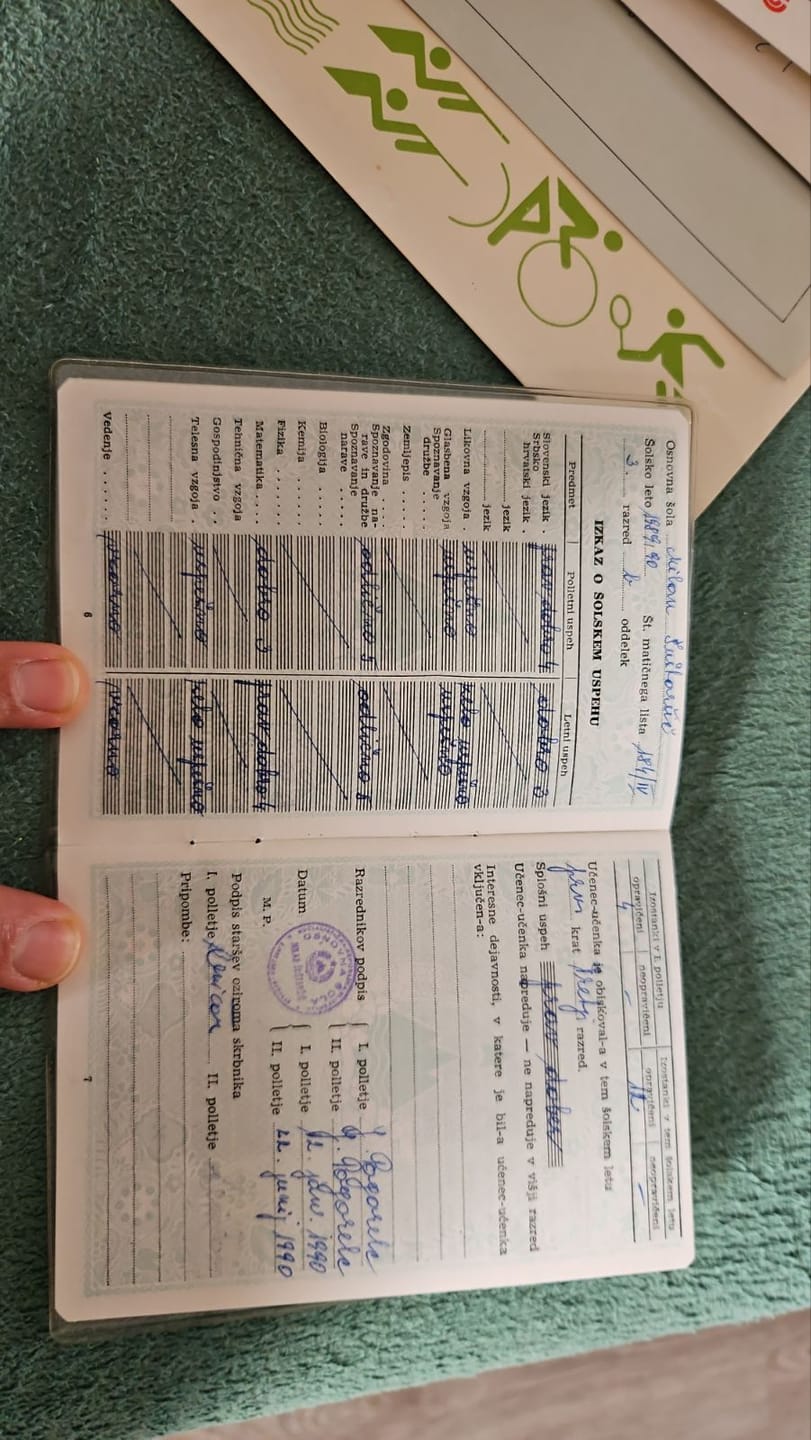 Osnovna šola Milan Šuštaršič
Šolsko leto 1989/90 Št. matičnega lista 184/IV
3. razred b oddelek
IZKAZ O ŠOLSKEM USPEHU
Predmet Polletni uspeh Letni uspeh
Slovenski jezik . prav dobro 4 dobro 3
Srbsko
hrvatski jezik .
jezik
jezik
Likovna vzgoja . uspešno zelo uspešno
Glasbena vzgoja uspešno uspešno
Spoznavanje
družbe . . . . .
Zemljepis . . . .
Zgodovina . . . .
Spoznavanje na-
rave in družbe odlično 5 odlično 5
Spoznavanje
narave . . . . .
Biologija . . . .
Kemija . . . . .
Fizika . . . . . .
Matematika . . . . dobro 3 prav dobro 4
Tehnična vzgoja
Gospodinjstvo . .
Telesna vzgoja . uspešno zelo uspešno
Vedenje . . . . . . vzorno vzorno
6
Izostanki v I. polletju Izostanki v tem šolskem letu
opravičeni neopravičeni opravičeni neopravičeni
4 – 12 –
Učenec-učenka je obiskoval-a v tem šolskem letu
prvi krat tretji razred.
Splošni uspeh prav dober
Učenec-učenka napreduje — ne napreduje v višji razred
Interesne dejavnosti, v katere je bil-a učenec-učenka
vključen-a:
Razrednikov podpis { I. polletje J. Pogorelc
II. polletje J. Pogorelc
Datum { I. polletje 12. jan. 1990
II. polletje 22. junij 1990
M. P.
OSNOVNA ŠOLA
Podpis staršev oziroma skrbnika
I. polletje II. polletje
Pripombe:
7